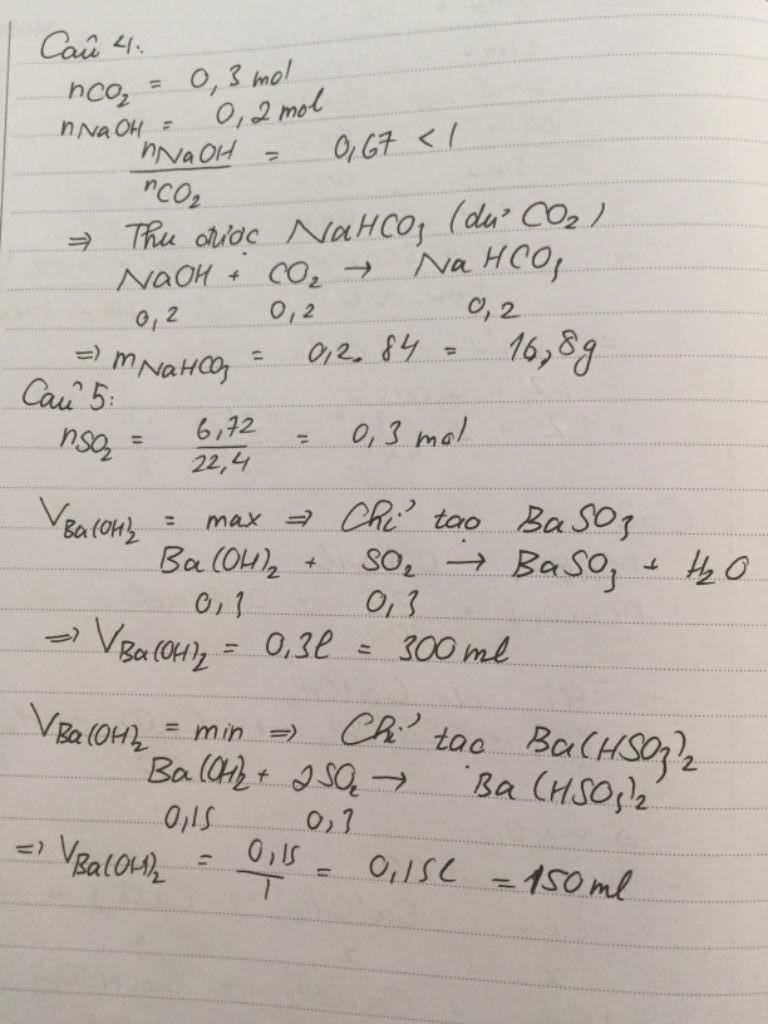 Câu 4:
nCO₂ = 0,3 mol
nNaOH = 0,2 mol
nNaOH / nCO₂ = 0,67 < 1
⇒ Thu được NaHCO₃ (dư CO₂)
NaOH + CO₂ → NaHCO₃
0,2 0,2 0,2
⇒ mNaHCO₃ = 0,2. 84 = 16,8g
Câu 5:
nSO₂ = 6,72 / 22,4 = 0,3 mol
VBa(OH)₂ = max ⇒ Chỉ tạo BaSO₃
Ba(OH)₂ + SO₂ → BaSO₃ + H₂O
0,3 0,3
⇒ VBa(OH)₂ = 0,3l = 300 ml
VBa(OH)₂ = min ⇒ Chỉ tạo Ba(HSO₃)₂
Ba(OH)₂ + 2SO₂ → Ba(HSO₃)₂
0,15 0,3
⇒ VBa(OH)₂ = 0,15 / 1 = 0,15l = 150 ml